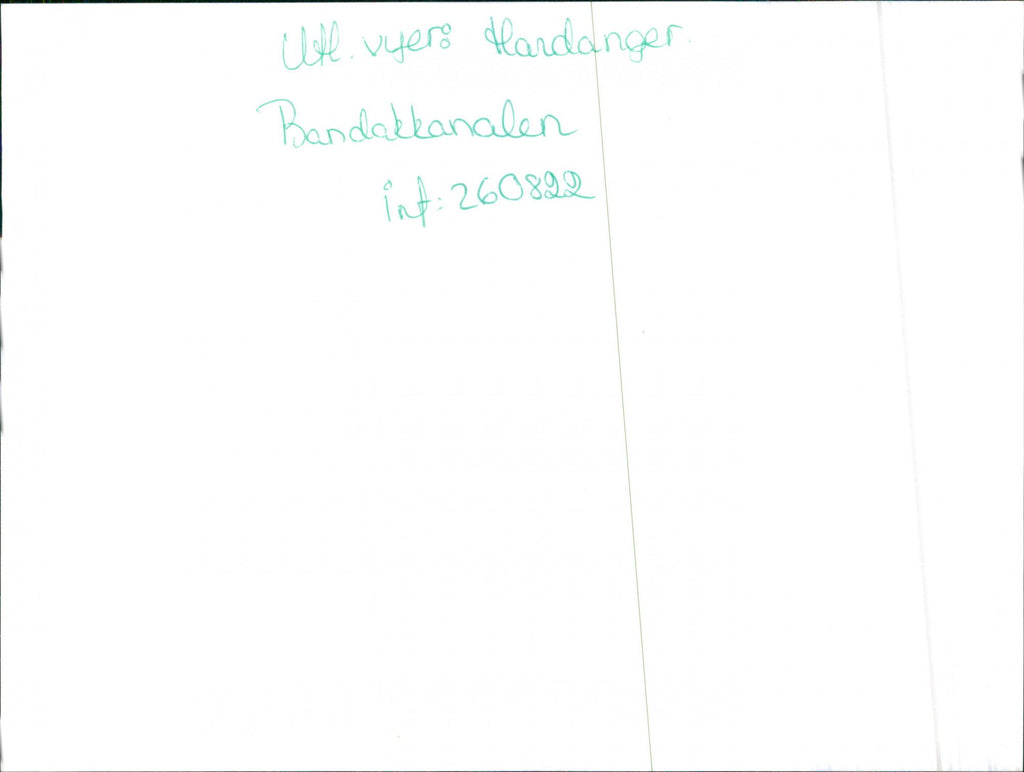 Utl. vyer: Hardanger.
Bandakkanalen
inf: 260822